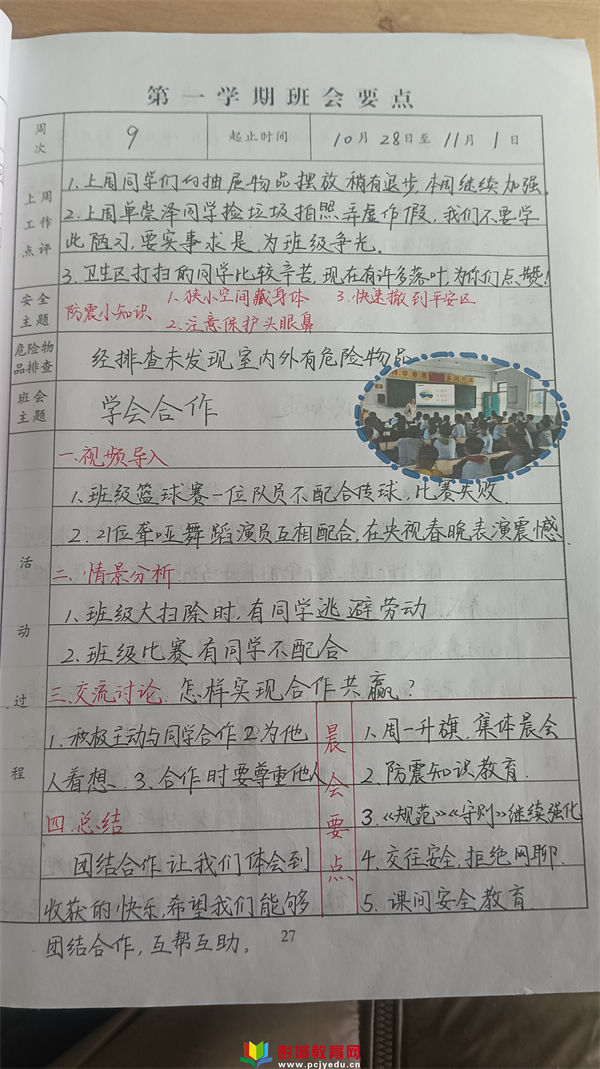 第一学期班会要点
周次 9 起止时间 10月28日至11月1日
上周工作点评
1.上周同学们的抽屉物品摆放稍有退步,本周继续加强.
2.上周单崇泽同学捡垃圾拍照弄虚作假,我们不要学
此陋习,要实事求是为班级争光.
3.卫生区打扫的同学比较辛苦,现在有许多落叶,为你们点赞!
安全主题
防震小知识 1.狭小空间藏身体 3.快速撤到平安区
2.注意保护头眼鼻
危险物品排查
经排查未发现室内外有危险物品
班会主题
学会合作
活动过程
一.视频导入
1.班级篮球赛一位队员不配合传球,比赛失败.
2.21位聋哑舞蹈演员互相配合,在央视春晚表演震憾.
二.情景分析
1.班级大扫除时,有同学逃避劳动.
2.班级比赛有同学不配合
三.交流讨论.怎样实现合作共赢?
1.积极主动与同学合作 2.为他
人着想、3.合作时要尊重他人
四.总结
团结合作让我们体会到
收获的快乐,希望我们能够
团结合作,互帮互助。
晨会要点
1.周一升旗.集体晨会
2.防震知识教育.
3.《规范》《守则》继续强化
4.交往安全,拒绝网聊.
5.课间安全教育.
27
彭城教育网
www.pcjyedu.cn